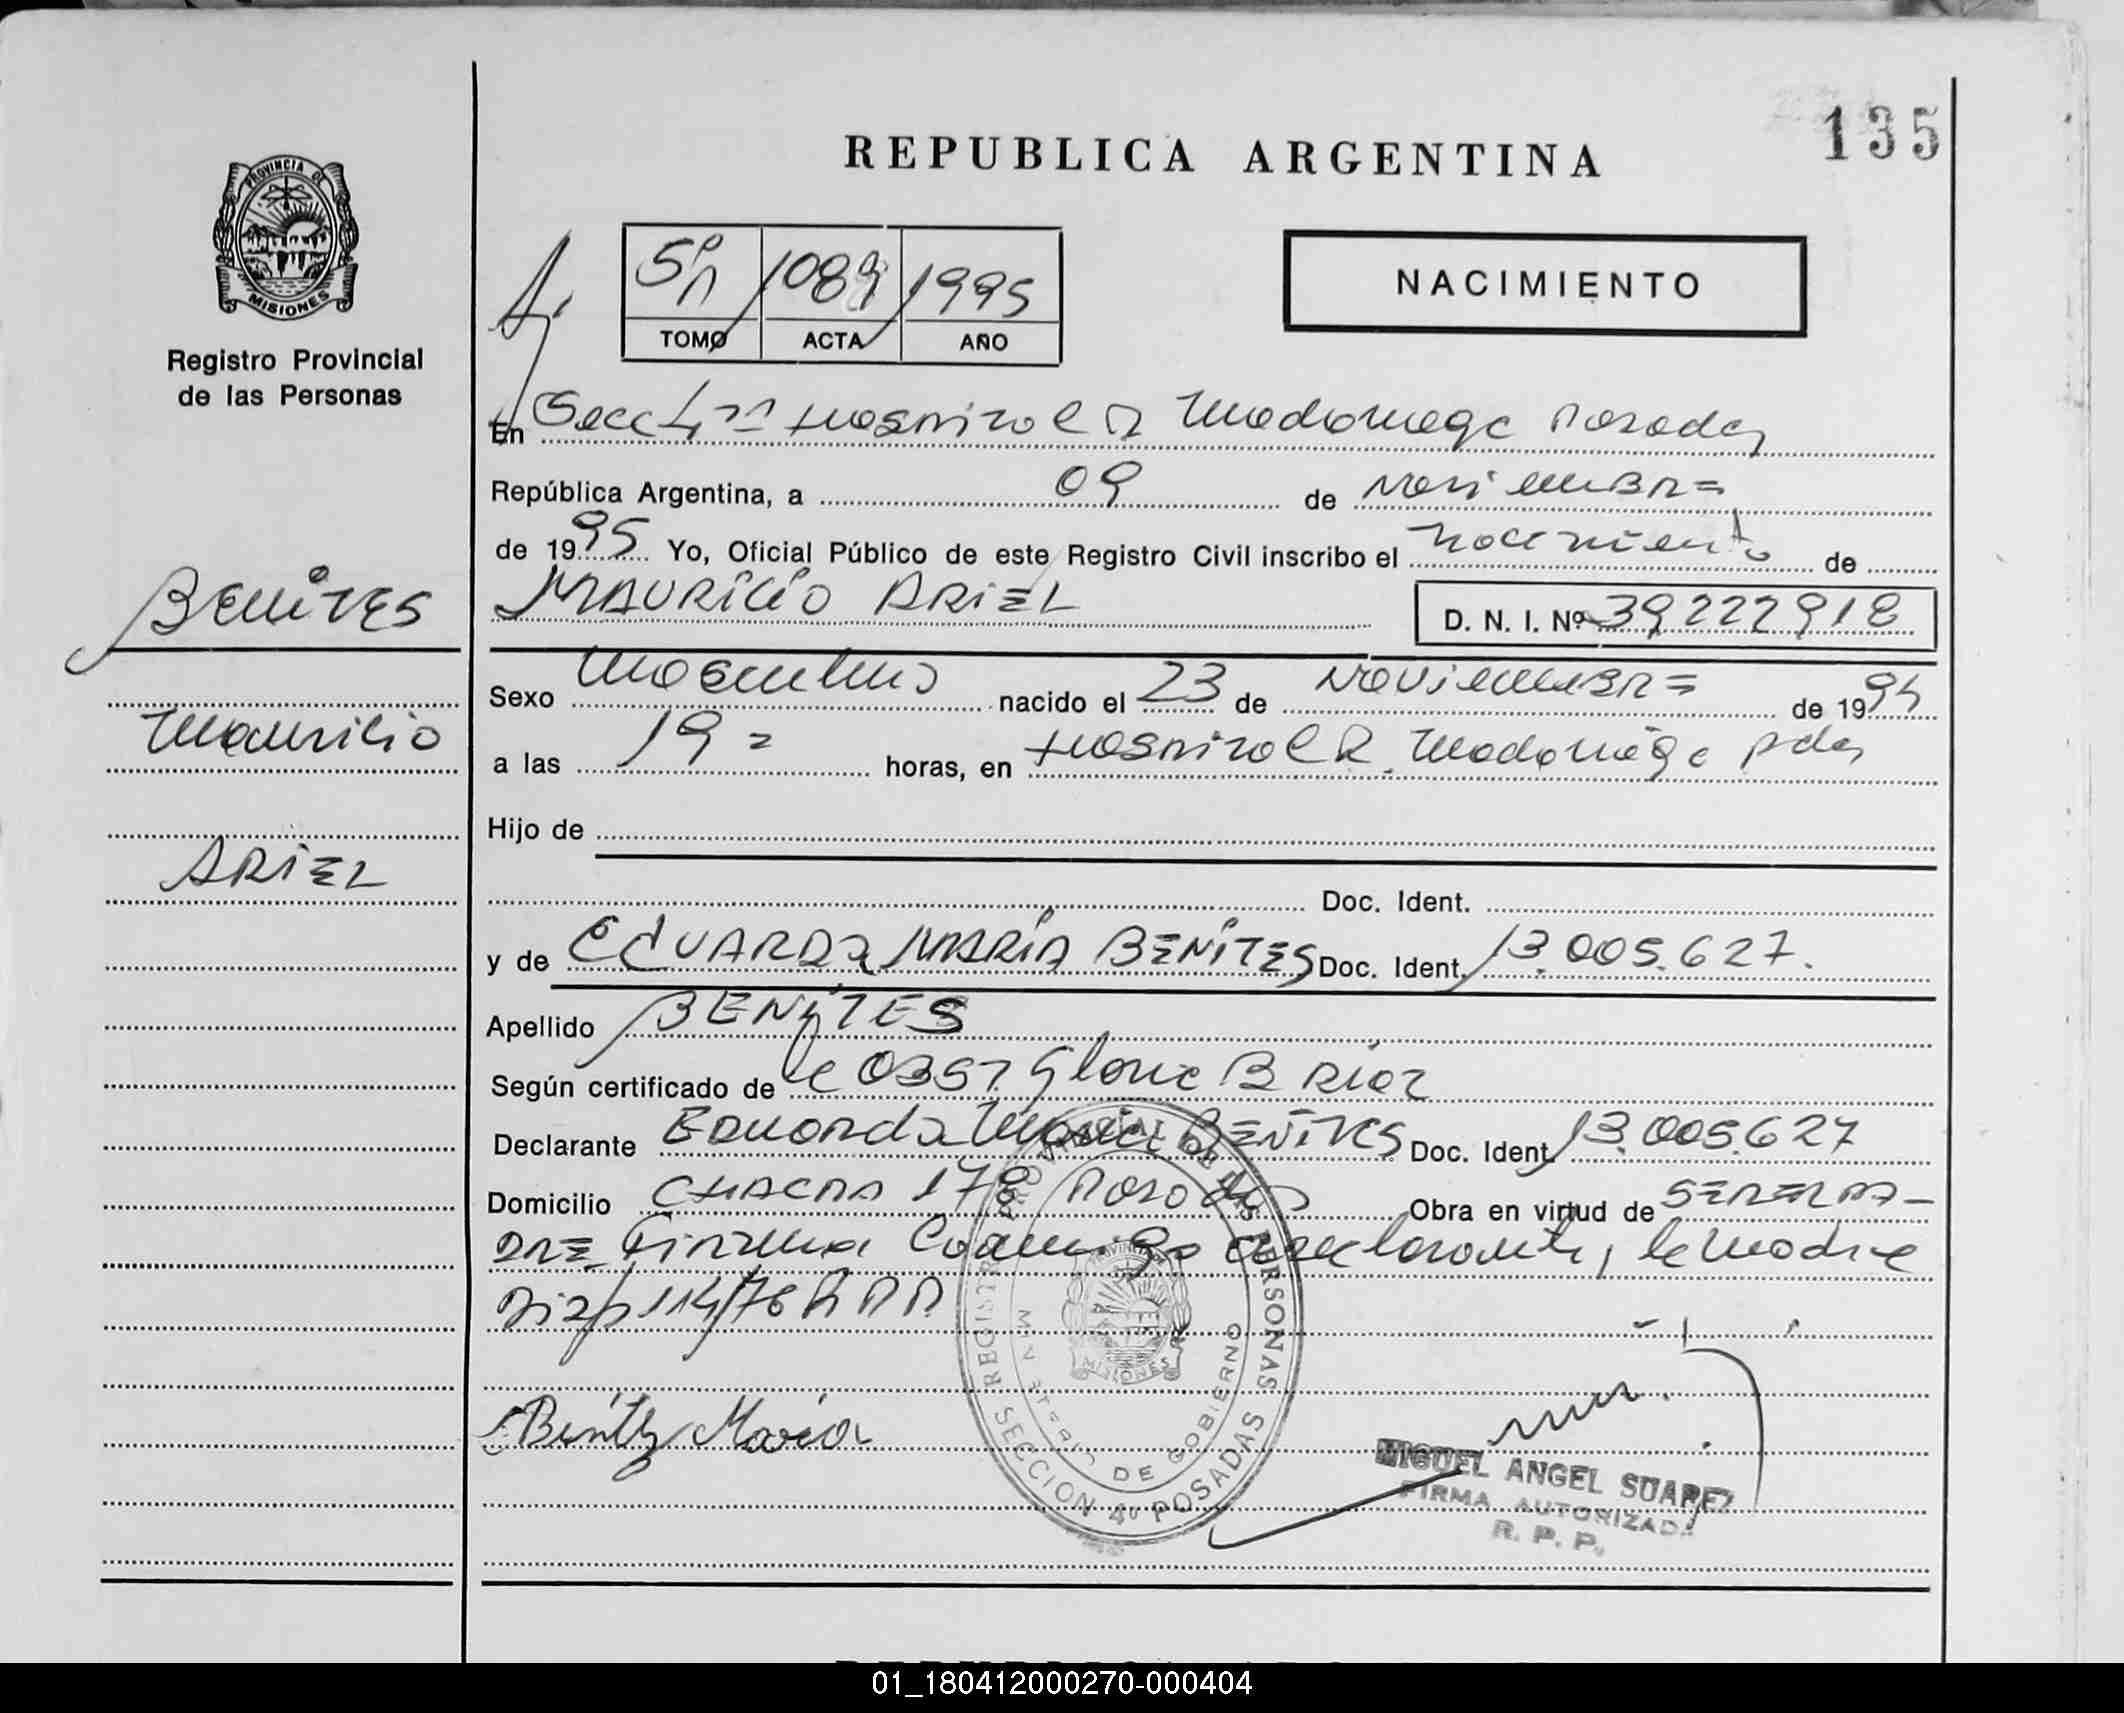 135
REPUBLICA ARGENTINA
PROVINCIA DE
MISIONES
Registro Provincial
de las Personas
5º 1089 1995
TOMO ACTA AÑO
NACIMIENTO
En Secc 4ª Hospital R Madariaga Posadas
República Argentina, a 09 de Noviembre
de 1995 Yo, Oficial Público de este Registro Civil inscribo el nacimiento de
MAURICIO ARIEL D. N. I. Nº 39222918
BENITES
Mauricio
ARIEL
Sexo Masculino nacido el 23 de Noviembre de 1994
a las 19 horas, en Hospital R. Madariaga Pdas
Hijo de
Doc. Ident.
y de EDUARDA MARÍA BENÍTES Doc. Ident. 13.005.627.
Apellido BENÍTES
Según certificado de la Obst Gloria B Ríos
Declarante Eduarda María BENÍTES Doc. Ident. 13.005.627
Domicilio CHACRA 178 Posadas Obra en virtud de
Firma Conmigo declarante, la madre
Disp 114/76
Benítez María
REGISTRO PROVINCIAL DE LAS PERSONAS
MINISTERIO DE GOBIERNO
PROVINCIA DE
MISIONES
SECCION 4º POSADAS
MIGUEL ANGEL SUAREZ
FIRMA AUTORIZADA
R. P. P.
01_180412000270-000404